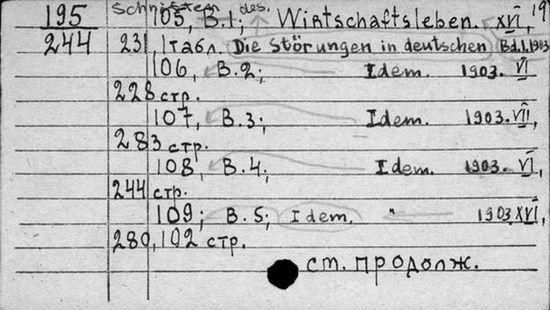 195 Schriften des 105, B.1; Wirtschaftsleben. XVI, 19
244 231, 1 табл. Die Störungen in deutschen Bd.1.1903
106, B.2; Idem. 1903. VI
228 стр.
107, B.3; Idem. 1903. VII,
283 стр.
108, B.4, Idem. 1903. VI,
244 стр.
109; B.5; Idem. " 1903 XVI,
280, 102 стр.
ст. продолж.